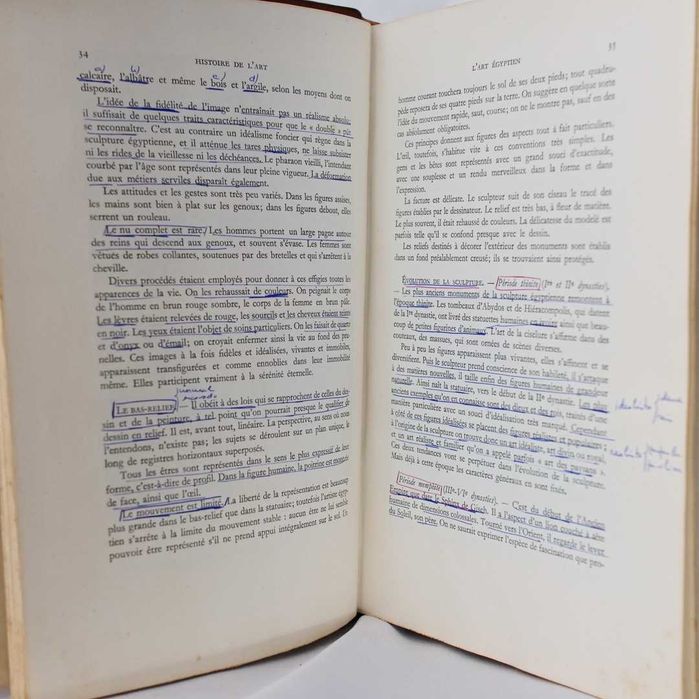 34
HISTOIRE DE L'ART
a) b) c) d)
calcaire, l'albâtre et même le bois et l'argile, selon les moyens dont on
disposait.
L'idée de la fidélité de l'image n'entraînait pas un réalisme absolu,
il suffisait de quelques traits caractéristiques pour que le « double » pût
se reconnaître. C'est au contraire un idéalisme foncier qui règne dans la
sculpture égyptienne, et il atténue les tares physiques, ne laisse subsister
ni les rides de la vieillesse ni les déchéances. Le pharaon vieilli, l'intendant
courbé par l'âge sont représentés dans leur pleine vigueur. La déformation
due aux métiers serviles disparaît également.
Les attitudes et les gestes sont très peu variés. Dans les figures assises,
les mains sont bien à plat sur les genoux; dans les figures debout, elles
serrent un rouleau.
Le nu complet est rare. Les hommes portent un large pagne autour
des reins qui descend aux genoux, et souvent s'évase. Les femmes sont
vêtues de robes collantes, soutenues par des bretelles et qui s'arrêtent à la
cheville.
Divers procédés étaient employés pour donner à ces effigies toutes les
apparences de la vie. On les rehaussait de couleurs. On peignait le corps
de l'homme en brun rouge sombre, le corps de la femme en brun pâle.
Les lèvres étaient relevées de rouge, les sourcils et les cheveux étaient teints
en noir. Les yeux étaient l'objet de soins particuliers. On les faisait de quartz
et d'onyx ou d'émail; on croyait enfermer ainsi la vie au fond des pru-
nelles. Ces images à la fois fidèles et idéalisées, vivantes et immobiles,
apparaissent transfigurées et comme ennoblies dans leur immobilité
même. Elles participent vraiment à la sérénité éternelle.
LE BAS-RELIEF. — Il obéit à des lois qui se rapprochent de celles du des-
sin et de la peinture, à tel point qu'on pourrait presque le qualifier de
dessin en relief. Il est, avant tout, linéaire. La perspective, au sens où nous
l'entendons, n'existe pas; les sujets se déroulent sur un plan unique, le
long de registres horizontaux superposés.
Tous les êtres sont représentés dans le sens le plus expressif de leur
forme, c'est-à-dire de profil. Dans la figure humaine, la poitrine est montrée
de face, ainsi que l'œil.
Le mouvement est limité. La liberté de la représentation est beaucoup
plus grande dans le bas-relief que dans la statuaire; toutefois l'artiste égyp-
tien s'arrête à la limite du mouvement stable; aucun être ne lui semble
pouvoir être représenté s'il ne prend appui intégralement sur le sol. Un
L'ART ÉGYPTIEN
35
homme courant touchera toujours le sol de ses deux pieds; tout quadru-
pède reposera de ses quatre pieds sur la terre. On suggère en quelque sorte
l'idée du mouvement rapide, saut, course; on ne le montre pas, sauf en des
cas absolument obligatoires.
Ces principes donnent aux figures des aspects tout à fait particuliers.
L'œil, toutefois, s'habitue vite à ces conventions très simples. Les
gens et les bêtes sont représentés avec un grand souci d'exactitude,
avec une souplesse et un rendu merveilleux dans la forme et dans
l'expression.
La facture est délicate. Le sculpteur suit de son ciseau le tracé des
figures établies par le dessinateur. Le relief est très bas, à fleur de matière.
Le plus souvent, il était rehaussé de couleurs. La délicatesse du modelé est
parfois telle qu'il se confond presque avec le dessin.
Les reliefs destinés à décorer l'extérieur des monuments sont établis
dans un fond préalablement creusé; ils se trouvaient ainsi protégés.
ÉVOLUTION DE LA SCULPTURE. — Période thinite (Ire et IIe dynasties).
— Les plus anciens monuments de la sculpture égyptienne remontent à
l'époque thinite. Les tombeaux d'Abydos et de Hiéraconpolis, qui datent
de la Ire dynastie, ont livré des statuettes humaines en ivoire ainsi que beau-
coup de petites figurines d'animaux. L'art de la ciselure s'affirme dans des
couteaux, des massues, qui sont ornées de scènes diverses.
Peu à peu les figures apparaissent plus vivantes, elles s'affinent et se
diversifient. Puis le sculpteur prend conscience de son habileté, il s'attaque
à des matières nouvelles, il taille enfin des figures humaines de grandeur
naturelle. Ainsi naît la statuaire, vers le début de la IIe dynastie. Les plus
anciens exemples qu'on en connaisse sont des dieux et des rois, traités d'une
manière particulière avec un souci d'idéalisation très marqué. Cependant
à côté de ces figures idéalisées se placent des figures réalistes et populaires;
à l'origine de la sculpture on trouve donc un art idéaliste, art divin ou royal,
et un art réaliste et familier qu'on a appelé parfois « art des paysans ».
Ces deux tendances vont se perpétuer dans l'évolution de la sculpture.
Mais déjà à cette époque les caractères généraux en sont fixés.
Période memphite (IIIe-VIe dynasties). — C'est du début de l'Ancien
Empire que date le Sphinx de Giseh. Il a l'aspect d'un lion couché à tête
humaine de dimensions colossales. Tourné vers l'Orient, il regarde le lever
du Soleil, son père. On ne saurait exprimer l'espèce de fascination que pro-